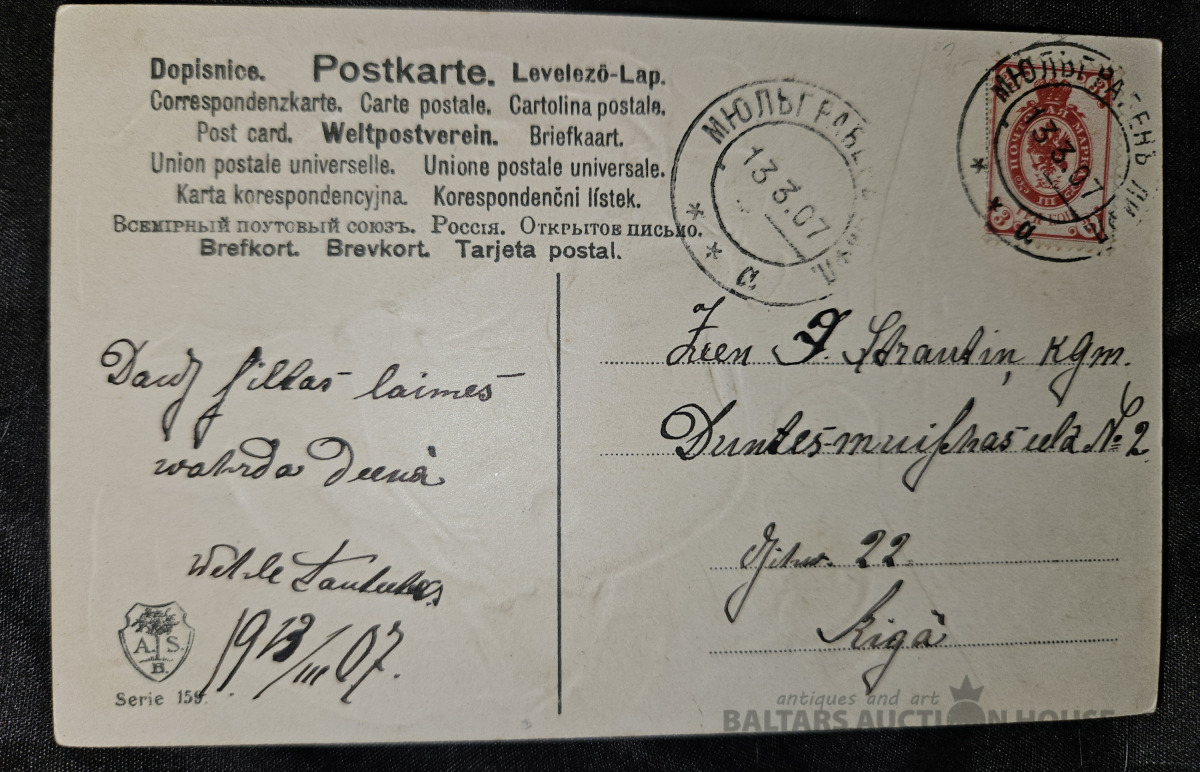 Dopisnice. Postkarte. Levelező-Lap.
Correspondenzkarte. Carte postale. Cartolina postale.
Post card. Weltpostverein. Briefkaart.
Union postale universelle. Unione postale universale.
Karta korespondencyjna. Korespondenční lístek.
Всемірный поутовый союзъ. Россія. Открытое письмо.
Brefkort. Brevkort. Tarjeta postal.
МЮЛЬГРАБЕНЪ
13.3.07
а
МЮЛЬГРАБЕНЪ ЛИ
13.3.07
а
ПОЧТОВАЯ МАРКА
3
Daudz siltas laimes
wahrda deenā
1913/III 07.
A. S.
B.
Serie 159.
Strautiņ kgm.
Duntes-muischas eelā № 2
22.
Rigā
antiques and art
BALTARS AUCTION HOUSE